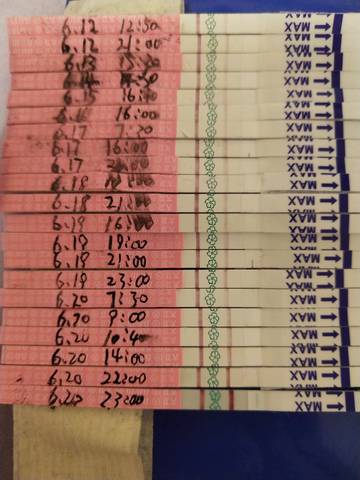 6.12 12:30 MAX
6.12 21:00 MAX
6.13 MAX
6.14 MAX
6.15 MAX
16:00 MAX
6.17 7:20 MAX
6.17 16:00 MAX
6.17 MAX
6.18 MAX
6.18 21:00 MAX
6.19 16:00 MAX
6.19 19:00 MAX
6.19 21:00 MAX
6.19 23:00 MAX
6.20 7:30 MAX
6.20 9:00 MAX
6.20 10:40 MAX
6.20 14:00 MAX
6.20 22:00 MAX
6.20 23:00 MAX